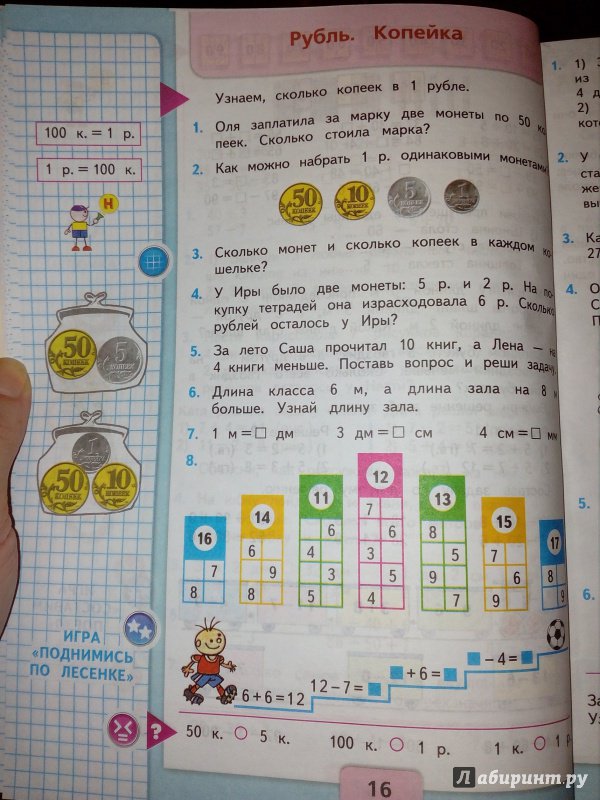 Рубль. Копейка
Узнаем, сколько копеек в 1 рубле.
100 к. = 1 р.
1 р. = 100 к.
Н
1. Оля заплатила за марку две монеты по 50 ко
пеек. Сколько стоила марка?
2. Как можно набрать 1 р. одинаковыми монетами
50 КОПЕЕК 10 КОПЕЕК 5 КОПЕЕК 1
3. Сколько монет и сколько копеек в каждом ко
шельке?
4. У Иры было две монеты: 5 р. и 2 р. На по
купку тетрадей она израсходовала 6 р. Сколько
рублей осталось у Иры?
5. За лето Саша прочитал 10 книг, а Лена — на
4 книги меньше. Поставь вопрос и реши задачу.
6. Длина класса 6 м, а длина зала на 8 м
больше. Узнай длину зала.
7. 1 м = □ дм 3 дм = □ см 4 см = □ мм
50 КОПЕЕК 5 КОПЕЕК
1
50 КОПЕЕК 10 КОПЕЕК
8.
16 14 11 12 13 15 17
7 8
6 6 8 6 9
6 4 3 5 7
7 9 3 5 9 6 8
8 8 5 4 7 9 9
ИГРА
«ПОДНИМИСЬ
ПО ЛЕСЕНКЕ»
6+6=12 12−7=■ ■+6=■ ■−4=■
?
50 к. ○ 5 к. 100 к. ○ 1 р. 1 к. ○ 1 р
16
1. 1)
из
4 д
2)
кот
2. У
ста
же
вы
3. Ка
27
4. О
С
П
5.
6.
За
Уз
Лабиринт.ру